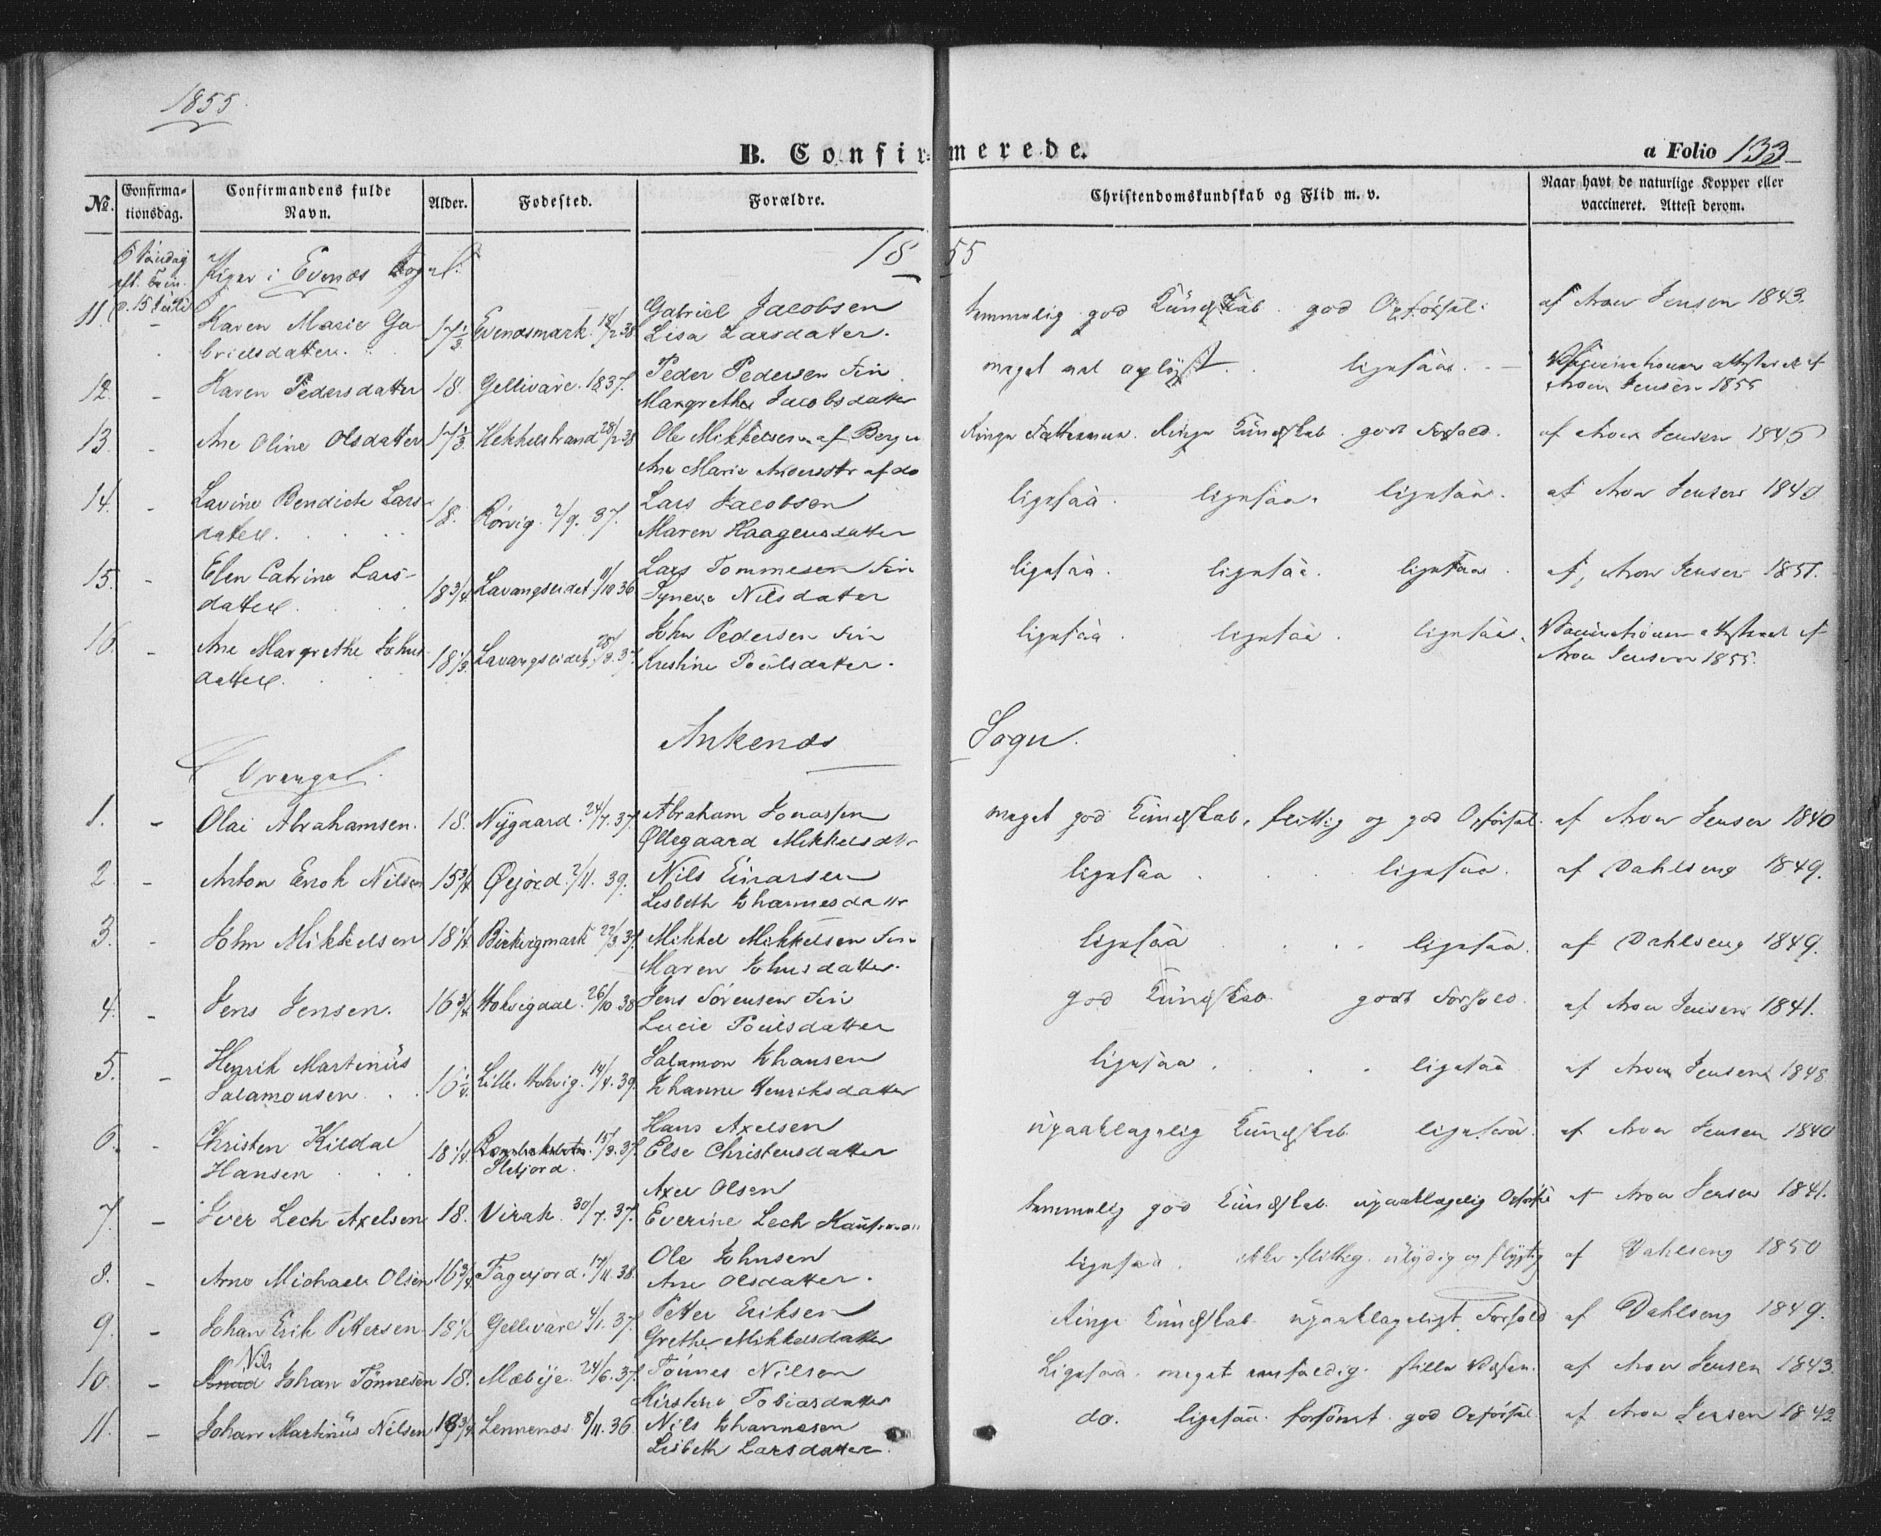 1855
B. Confirmerede.
a Folio 133
No.
Confirmationsdag.
Confirmandens fulde Navn.
Alder.
Fødested.
Forældre.
Christendomskundskab og Flid m. v.
Naar havt de naturlige Kopper eller vaccineret. Attest derom.
6 Söndag
eft. Trin.
d. 15 Juli
Piger i Evenæs Sogn.
1855
11. - Karen Marie Gabrielsdatter. 17 1/3 Evenæsmark 18/2 38 Gabriel Jacobsen Lisa Larsdatter. temmelig god Kundskab. god Opförsel. af Aron Jensen 1843.
12. - Karen Pedersdatter 18. Gellivare 1837. Peder Pedersen Fin Margrethe Jacobsdatter meget vel oplyst. ligesaa. Vaccinationsattesteret af Aron Jensen 1855
13. - Ane Oline Olsdatter 17 1/3. Hekkelstrand 28/2 38 Ole Mikkelsen af Bergen Ane Marie Andersdtr af do Ringe Fatteevne. Ringe Kundskab. godt Forhold. af Aron Jensen 1845
14. - Lavine Bendicte Larsdatter. 18. Rörvig. 2/9. 37. Lars Jacobsen Maren Haagensdatter ligesaa. ligesaa. ligesaa. af Aron Jensen 1840
15. - Elen Catrine Larsdatter. 18 3/4 Lavangseidet 11/10 36 Lars Tommesen Fin Syneva Nilsdatter ligesaa. ligesaa. ligesaa. af Aron Jensen 1851.
16. - Ane Margrethe Johnsdatter. 18 1/3 Lavangseidet 28/3. 37. John Pedersen Fin Kristine Poulsdatter. ligesaa. ligesaa. ligesaa. Vaccinationen attesteret af Aron Jensen 1855.
Ankenæs Sogn.
Drenge.
1. - Olai Abrahamsen. 18. Nygaard. 24/7. 37. Abraham Jonassen Ollegaard Mikkelsdtr meget god Kundskab, flittig og god Opförsel. af Aron Jensen 1840
2. - Anton Enok Nilsen 15 3/4 Öyjord. 2/11. 39. Nils Einarsen Lisbeth Johannesdattr ligesaa. ligesaa. af Dahlseng 1849.
3. - John Mikkelsen 18 1/4 Beisvigmark 22/3 37. Mikkel Mikkelsen Fin Maren Johnsdatter. ligesaa. ligesaa. af Dahlseng 1849.
4. - Jens Jensen. 16 3/4 Hokvigdal. 26/10 38 Jens Sörensen Fin Lucie Poulsdatter god Kundskab. godt Forhold. af Aron Jensen 1841.
5. - Henrik Martinus Salamonsen. 16 1/4. Lille Hokvig. 14/4. 39. Salamon Johansen Johanne Henriksdatter ligesaa. ligesaa af Aron Jensen 1848
6. - Christen Kildal Hansen 18 1/4 Sletjord. 15/3. 37. Hans Axelsen Else Christensdatter upaaklagelig Kundskab ligesaa. af Aron Jensen 1840
7. - Iver Lech Axelsen 18. Virak. 30/7. 37. Axel Olsen Everine Lech Kaufman temmelig god Kundskab. upaaklagelig Opförsel af Aron Jensen 1841.
8. - Arne Michael Olsen 16 3/4 Fagerjord. 17/11. 38. Ole Johnsen Ane Olsdatter. ligesaa. ikke flittig. ulydig og flygtig af Dahlseng 1850
9. - Johan Erik Pettersen 18 1/2 Gellivare 4/1. 37. Petter Eriksen Grethe Mikkelsdatter Ringe Kundskab. upaaklageligt Forhold af Dahlseng 1849.
10. - Knud Nils Johan Tönnesen 18. Mæbye. 24/6. 37. Tönnes Nilsen Kirstine Tobiasdatter Ligesaa. meget eenfoldig. stille Væsen. af Aron Jensen 1843.
11. - Johan Martinus Nilsen 18 3/4 Lennenes. 8/11. 36. Nils Johannesen Lisbeth Larsdatter. do. ligesaa. forsömt. god Opförsel. af Aron Jensen 1843